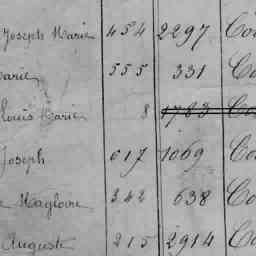 Joseph Marie 454 2297 Co
Marie 555 331 Co
Louis Marie 8 1783 Co
Joseph 017 1069 Co
Magloire 342 638 Co
Auguste 215 2914 Co